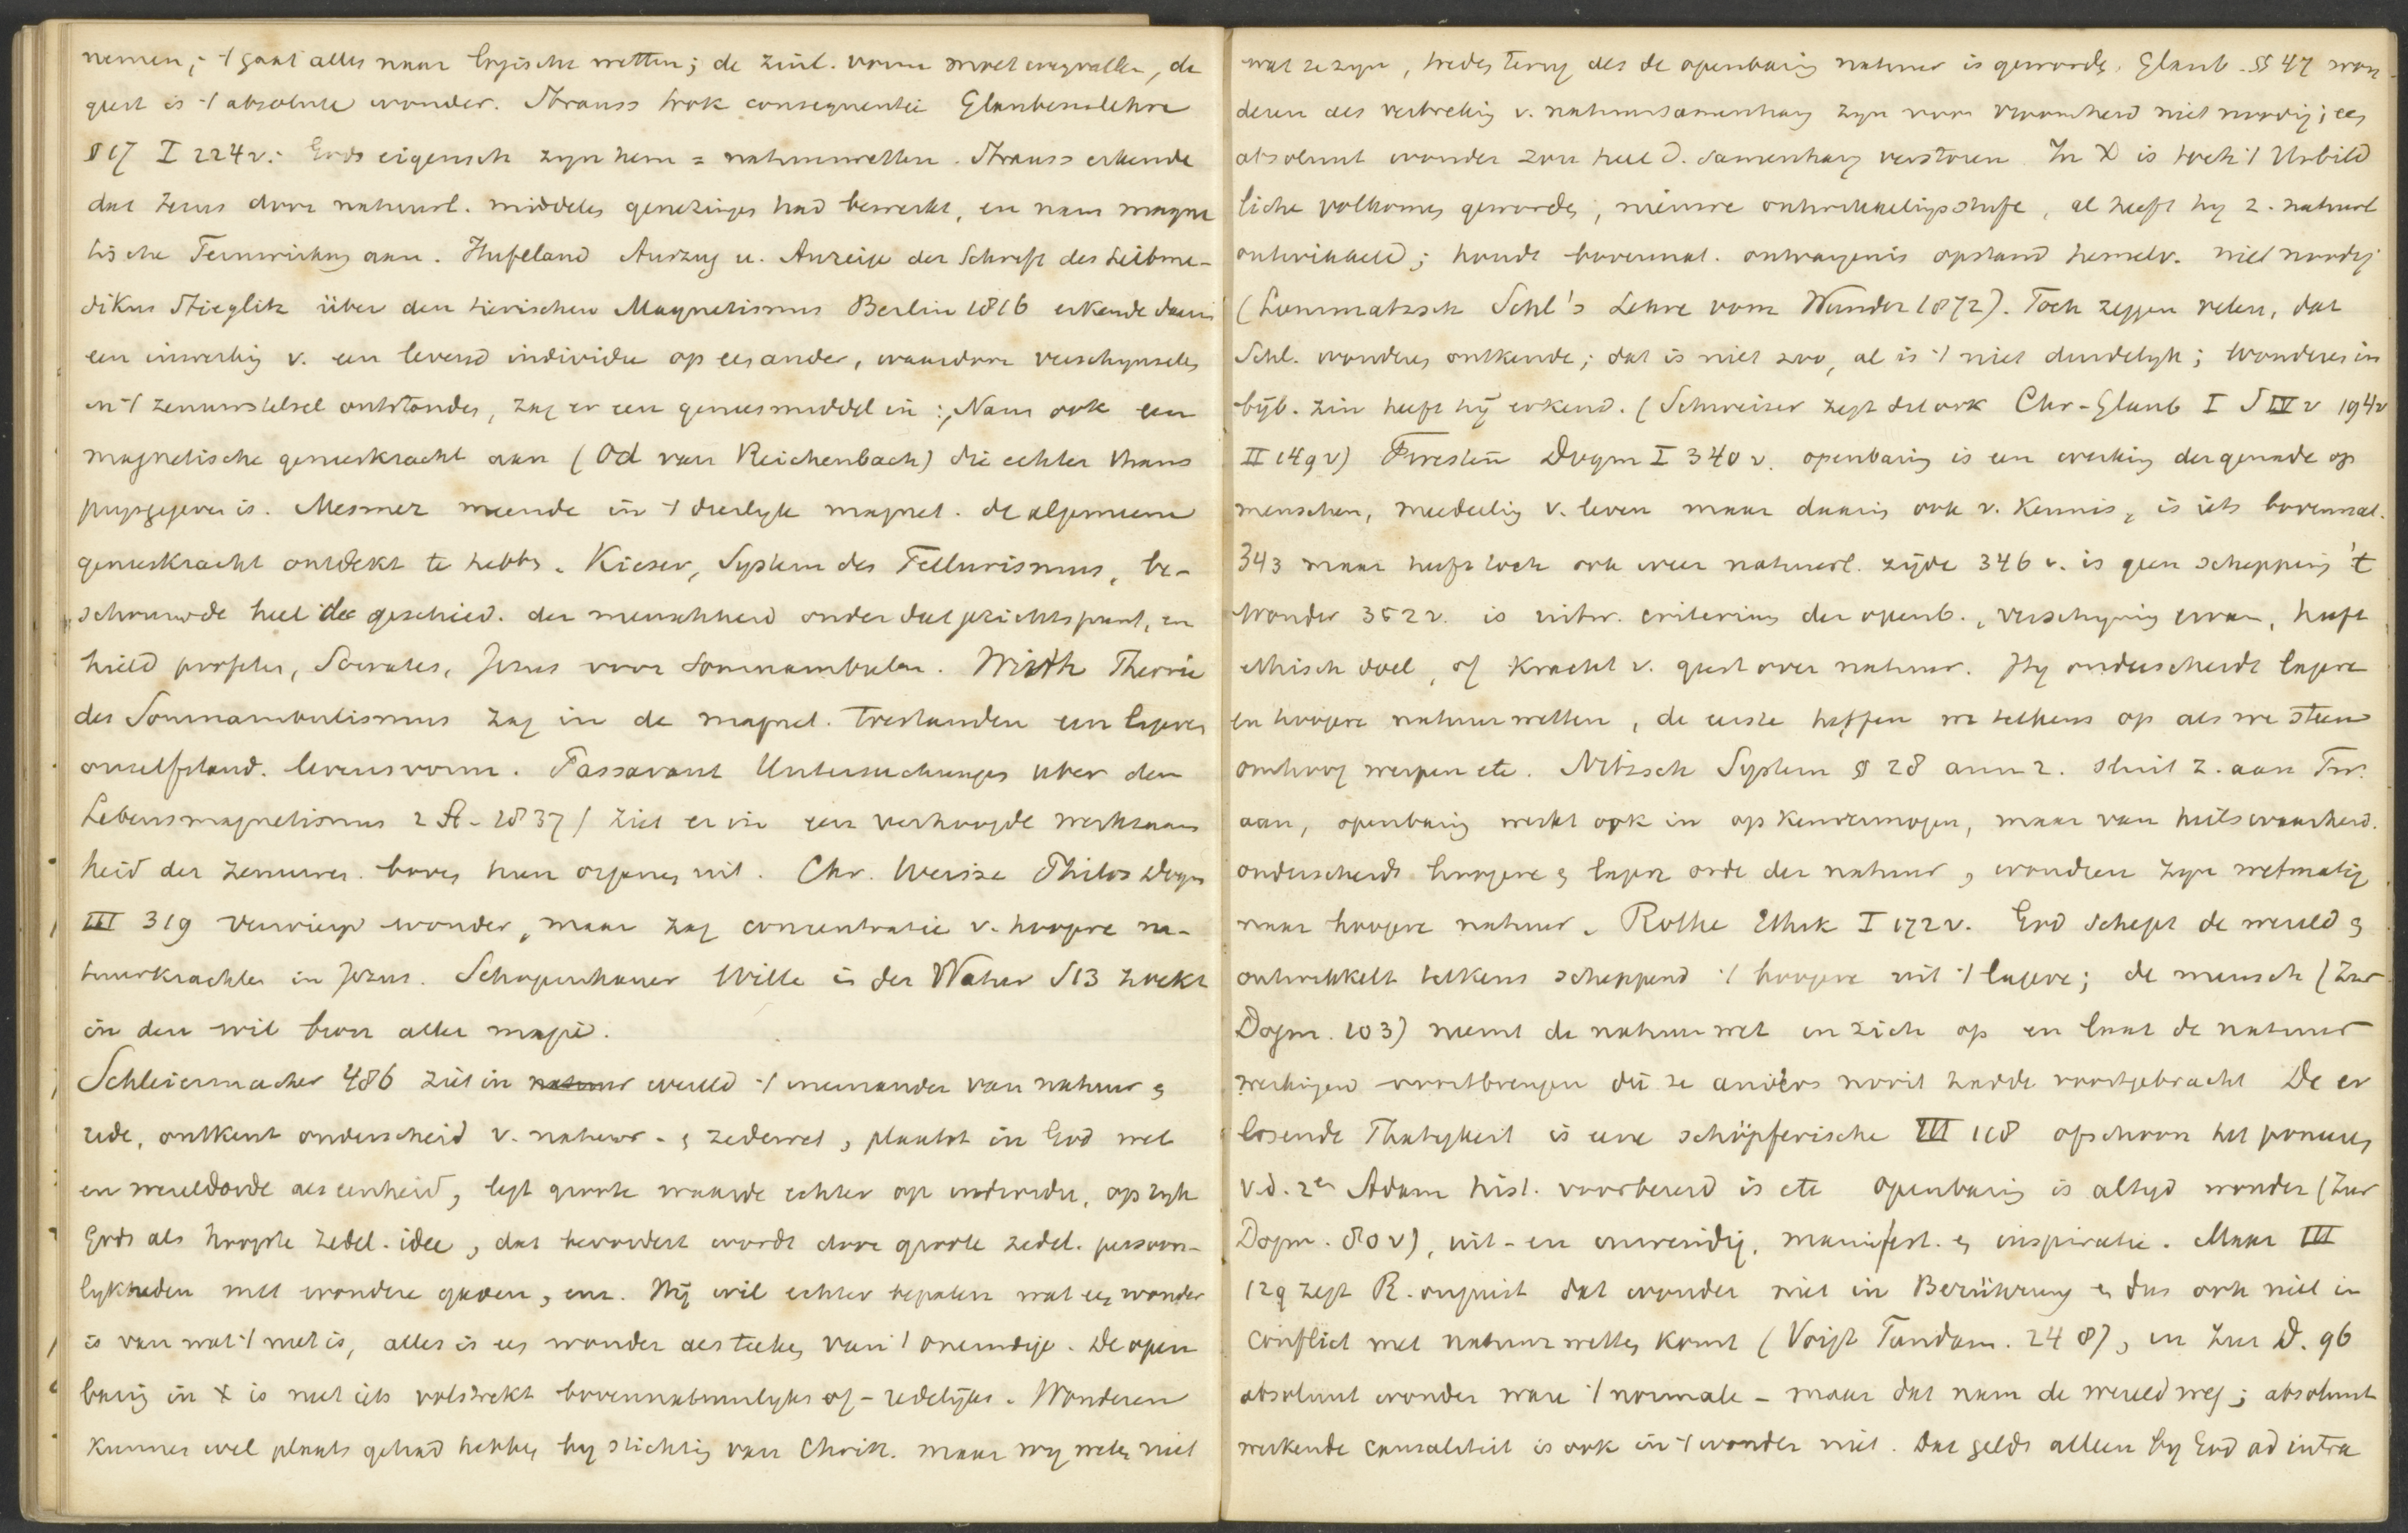 nemen; 't gaat alles naar logische wetten; de zinl. vorm moet wegvallen, de
geest is 't absolute wonder. Strauss trok consequentie Glaubenslehre
§ 17 I 224 v.: Gods eigensch zijn hem = natuurwetten. Strauss erkende
dat Jezus door natuurl. middelen genezingen had bewerkt, en nam magne
tische Fernwirkung aan. Hufeland Auszug u. Anzeige der Schrift des Leibme-
dikus Stieglitz über den tierischen Magnetismus Berlin 1816 erkende daarin
een inwerking v. een levend individu op een ander, waardoor verschijnselen
in 't zenuwstelsel ontstonden, zag er een geneesmiddel in; Nam ook een
magnetische geneeskracht aan (Od van Reichenbach) die echter thans
prijsgegeven is. Mesmer meende in 't dierlijk magnet. de algemeene
geneeskracht ontdekt te hebben. Kieser, System des Tellurismus, be-
schouwde heel de geschied. der menschheid onder dat gezichtspunt, en
hield profeten, Socrates, Jezus voor somnambulen. Wirth Theorie
des Somnambulismus zag in de magnet. toestanden een lageren
onzelfstand. levensvorm. Passavant Untersuchungen über den
Lebensmagnetismus 2 A. 1837) ziet er in een verhoogde werkzaam
heid der zenuwen boven hun organen uit. Chr. Weisse Philos Dogm
III 319 verwierp wonder, maar zag concentratie v. hoogere na-
tuurkrachten in Jezus. Schopenhauer Wille in der Natur S 13 zoekt
in den wil bron aller magie.
Schleiermacher 486 ziet in natuur wereld 't ineenander van natuur en
rede, ontkent onderscheid v. natuur- en zedewet, plaatst in God wet
en wereldorde als eenheid, legt groote waarde echter op individu, op rijk
Gods als hoogste zedel. idee, dat bevordert wordt door groote zedel. persoon-
lykheden met wondere gaven, enz. Hij wil echter bepalen wat een wonder
is van wat 't niet is, alles is een wonder als teeken van 't oneindige. De open
baring in X is niet iets volstrekt bovennatuurlijks of -redelijks. Wonderen
kunnen wel plaats gehad hebben bij stichting van Christ. maar wij weten niet
wat ze zijn, treden terug als de openbaring natuur is geworden. Glaub. §§ 47 won
deren als verbreking v. natuursamenhang zijn voor vroomheid niet noodig; een
absoluut wonder zou heel d. samenhang verstoren. In X is toch 't Urbild
liche volkomen geworden, nieuwe ontwikkelingsstufe, al heeft hij z. natuurl
ontwikkeld; houdt bovennat. ontvangenis opstand. hemelv. niet noodig
(Lommatzsch Schl's Lehre vom Wunder 1872). Toch zeggen velen, dat
Schl. wonderen ontkende; dat is niet zoo, al is 't niet duidelijk; wonderen in
bijb. zin heeft hij erkend. (Schweizer zegt dit ook Chr-Glaub I S IV v 194 v
II 149 v) Twesten Dogm I 340 v. openbaring is een werking der genade op
menschen, meedeeling v. leven maar daarin ook v. kennis, is iets bovennat.
343 maar heeft toch ook weer natuurl. zijde 346 v. is geen schepping 't
Wonder 352 v. is uitw. criterium der openb., verschijning ervan, heeft
ethisch doel, of kracht v. geest over natuur. Hij onderscheidt lagere
en hoogere natuurwetten, de eerste heffen we telkens op als we steen
omhoog werpen etc. Nitzsch System § 28 anm 2. sluit z. aan Tw.
aan, openbaring werkt ook in op kenvermogen, maar van heilswaarheid.
onderscheidt hoogere en lagere orde der natuur, wonderen zijn wetmatig
naar hoogere natuur. Rothe Ethik I 172 v. God schept de wereld en
ontwikkelt telkens scheppend 't hoogere uit 't lagere; de mensch (Zur
Dogm. 103) neemt de natuurwet in zich op en laat de natuur
werkingen voortbrengen die ze anders nooit hadde voortgebracht De er
lösende Thatigkeit is eene schöpferische III 118 ofschoon het poneeren
v.d. 2en Adam hist. voorbereid is etc openbaring is altijd wonder (Zur
Dogm. 80 v), uit- en inwendig, manifest. en inspiratie. Maar III
129 zegt R. ongunst dat wonder niet in Berührung en dus ook niet in
conflict met natuurwetten komt (Voigt Fundam. 248), en Zur D. 96
absoluut wonder ware 't normale - maar dat nam de wereld weg; absoluut
werkende causaliteit is ook in 't wonder niet. Dat geldt alleen bij God ad intra